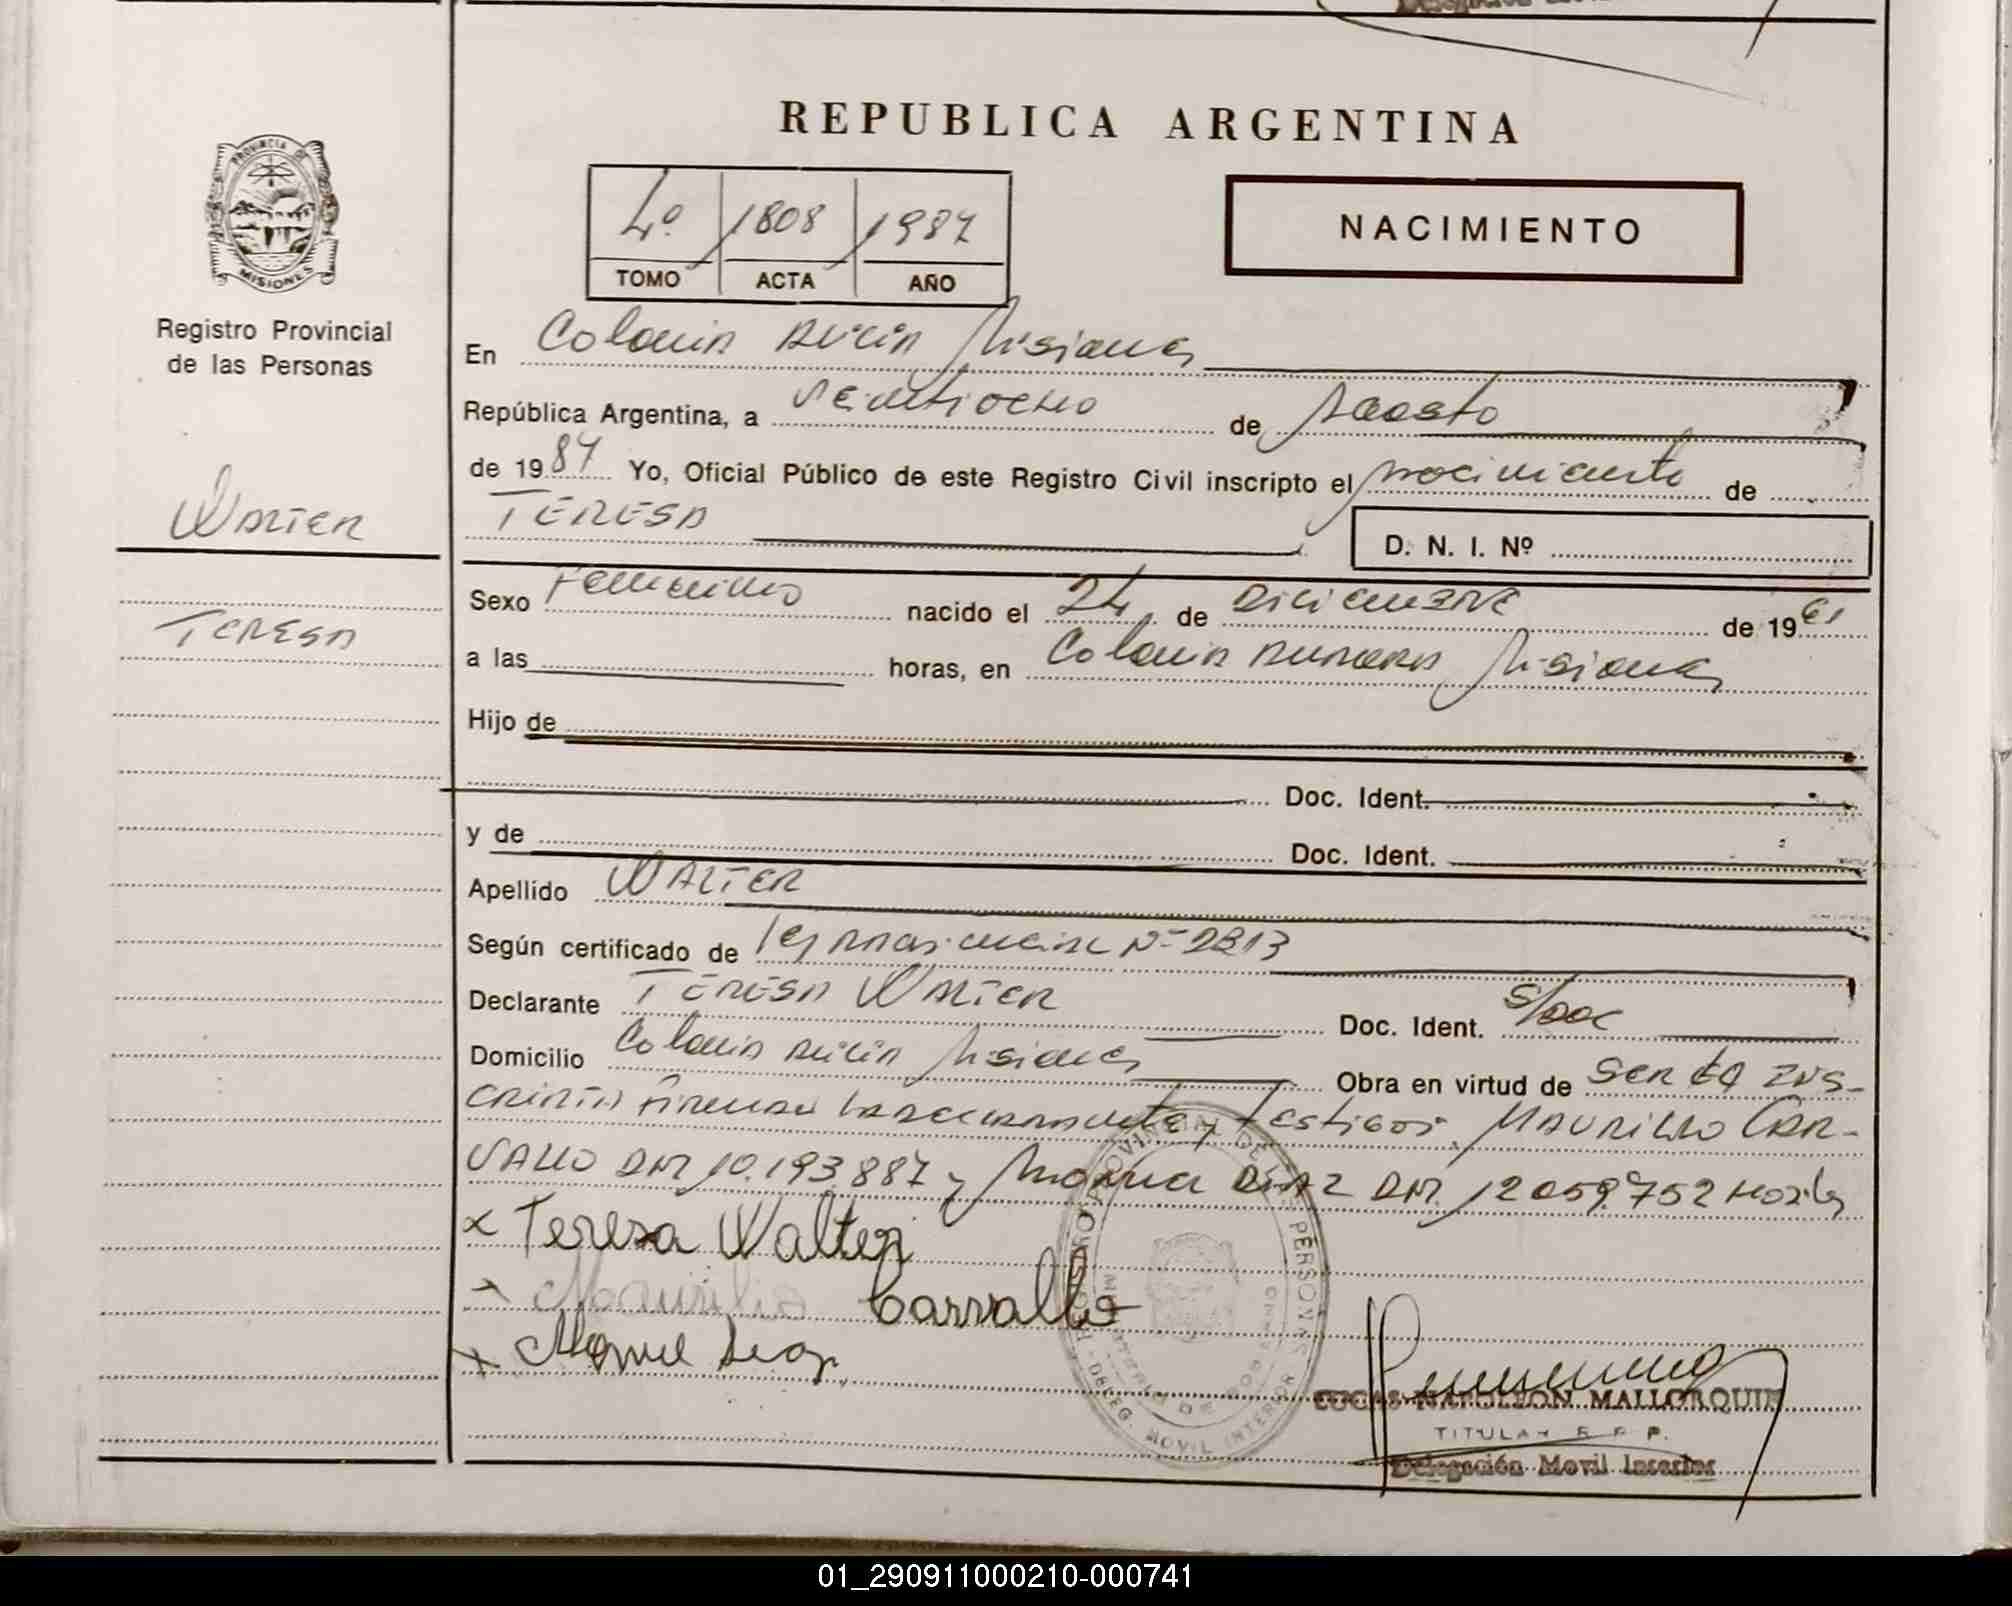 REPUBLICA ARGENTINA
PROVINCIA DE
MISIONES
Registro Provincial
de las Personas
4º 1808 1987
TOMO ACTA AÑO
NACIMIENTO
En Colonia Alicia Misiones
República Argentina, a veintiocho de Agosto
de 1987 Yo, Oficial Público de este Registro Civil inscripto el nacimiento de
WALTER
TERESA
D. N. I. Nº
TERESA
Sexo Femenino nacido el 24 de Diciembre de 1961
a las horas, en Colonia Aurora Misiones
Hijo de
Doc. Ident.
y de Doc. Ident.
Apellido WALTER
Según certificado de Ley Provincial Nº 2213
Declarante TERESA WALTER Doc. Ident. S/Doc
Domicilio Colonia Alicia Misiones Obra en virtud de ser la Ins-
cripta Firman la declarante y testigos. MAURILIO CAR-
VALLO DNI 10.193.887 y DIAZ DNI. 12059.752
x Teresa Walter
x Maurilio Carvallo
x
REGISTRO PROVINCIAL DE LAS PERSONAS
DELEG. MOVIL INTERIOR
MINISTERIO DE GOBIERNO
LUCAS NAPOLEON MALLORQUIN
TITULAR R. P. P.
Delegación Movil Interior
01_290911000210-000741